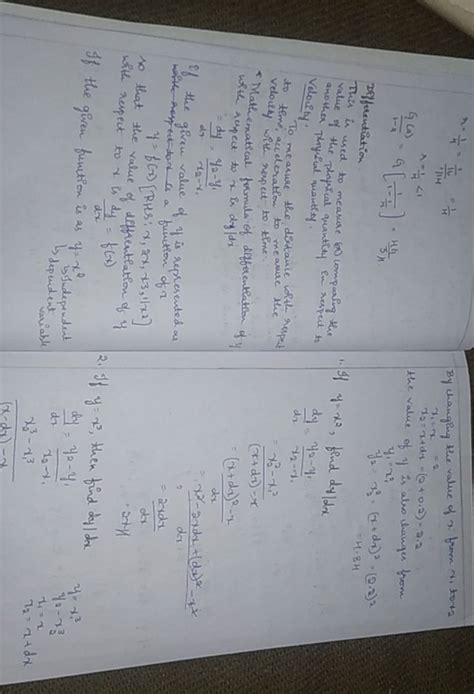 Differentiation
This is used to measure (or) comparing the
value of the physical quantity in respect to
another physical quantity.
velocity.
To measure the distance with respect
to time, acceleration to measure the
velocity with respect to time.
* Mathematical formula of differentiation of y
with respect to x is dy/dx
= dy/dx = y2-y1/x2-x1
If the given value of y is represented as
a function of x
y = f(x)
so that the value of differentiation of y
with respect to x is dy/dx = f(x)
If the given function is as y = x²
↳ Independent
↳ dependent variable
By changing the value of x from x1 to x2
x1 = x = 2
x2 = x+dx = (2+0.2) = 2.2
the value of y is also changes from
y1 = x1²
y2 = x2² = (x+dx)² = (2.2)²
= 4.84
1. If y = x², find dy/dx
dy/dx = y2-y1/x2-x1
= x2²-x1²/(x+dx)-x
= (x+dx)²-x/dx
= 2xdx/dx
= 2x
2. If y = x³ then find dy/dx
dy/dx = y2-y1/x2-x1
x2³-x1³/(x+dx)-x
y = x1³
y2 = x2³
x1 = x
x2 = x+dx